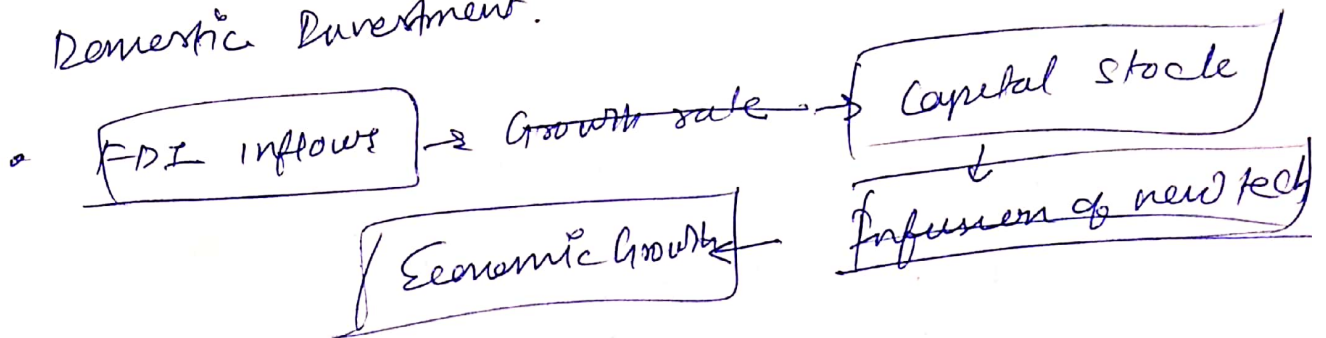 Domestic Investment.
• FDI inflows → Growth rate → Capital stock
↓
Economic Growth ← Infusion of new tech